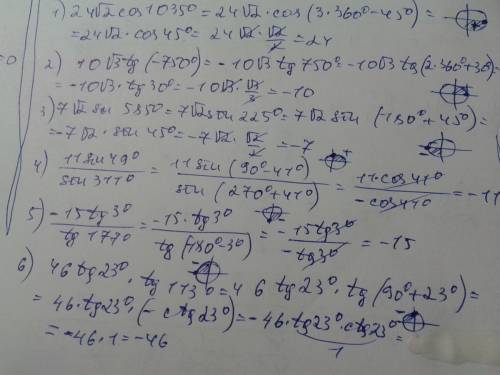 1) 24√2 cos 1035° = 24√2 · cos (3·360° − 45°) =
= 24√2 · cos 45° = 24√2 · √2/2 = 24
2) 10√3 tg (−750°) = −10√3 tg 750° = −10√3 tg (2·360° + 30°) =
= −10√3 · tg 30° = −10√3 · √3/3 = −10
3) 7√2 sin 585° = 7√2 sin 225° = 7√2 sin (180° + 45°) =
= −7√2 · sin 45° = −7√2 · √2/2 = −7
4) 11 sin 49° / sin 311° = 11 sin (90° − 41°) / sin (270° + 41°) = 11 · cos 41° / −cos 41° = −11
5) −15 tg 3° / tg 177° = −15 · tg 3° / tg (180° − 3°) = −15 tg 3° / −tg 3° = −15
6) 46 tg 23° · tg 113° = 46 tg 23° · tg (90° + 23°) =
= 46 · tg 23° · (− ctg 23°) = −46 · tg 23° · ctg 23° =
1
= −46 · 1 = −46